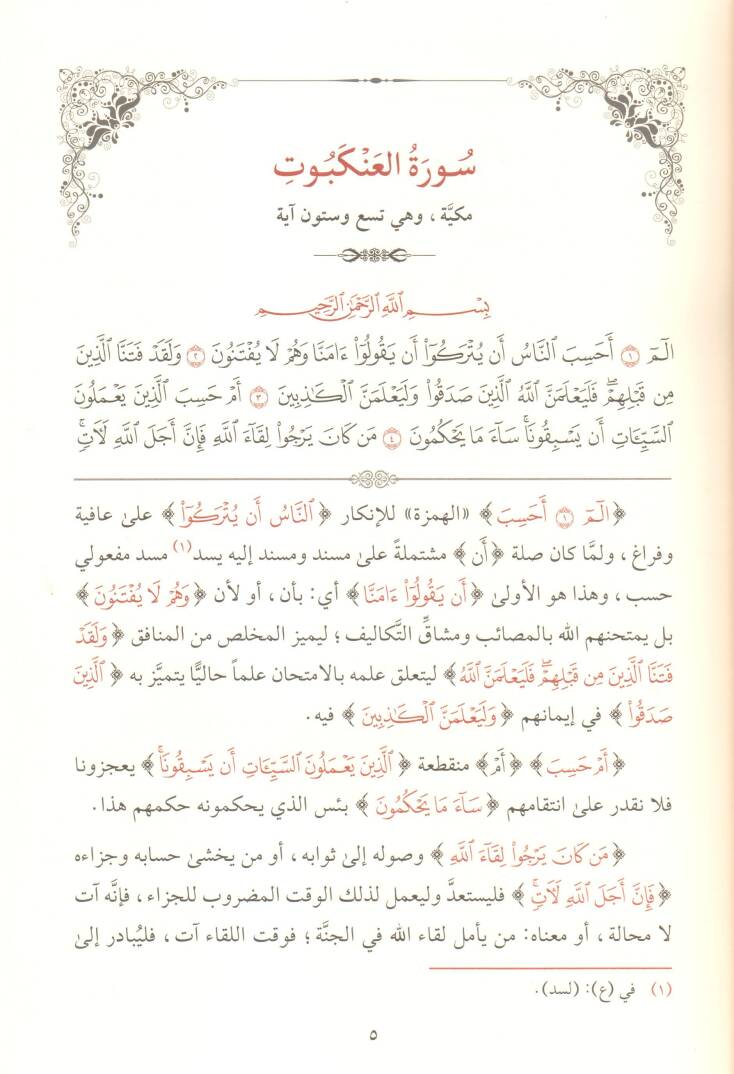 سُورَةُ العَنْكَبُوتِ
مكيَّة ، وهي تسع وستون آية
بِسْمِ ٱللَّهِ ٱلرَّحْمَٰنِ ٱلرَّحِيمِ
الٓمٓ ۝١ أَحَسِبَ ٱلنَّاسُ أَن يُتْرَكُوٓا۟ أَن يَقُولُوٓا۟ ءَامَنَّا وَهُمْ لَا يُفْتَنُونَ ۝٢ وَلَقَدْ فَتَنَّا ٱلَّذِينَ
مِن قَبْلِهِمْ ۖ فَلَيَعْلَمَنَّ ٱللَّهُ ٱلَّذِينَ صَدَقُوا۟ وَلَيَعْلَمَنَّ ٱلْكَٰذِبِينَ ۝٣ أَمْ حَسِبَ ٱلَّذِينَ يَعْمَلُونَ
ٱلسَّيِّـَٔاتِ أَن يَسْبِقُونَا ۚ سَآءَ مَا يَحْكُمُونَ ۝٤ مَن كَانَ يَرْجُوا۟ لِقَآءَ ٱللَّهِ فَإِنَّ أَجَلَ ٱللَّهِ لَـَٔاتٍ ۚ
﴿الٓمٓ ۝١ أَحَسِبَ﴾ «الهمزة» للإنكار ﴿ٱلنَّاسُ أَن يُتْرَكُوٓا۟﴾ على عافية
وفراغ ، ولمَّا كان صلة ﴿أَن﴾ مشتملةً على مسند ومسند إليه يسد(١) مسد مفعولي
حسب ، وهذا هو الأولى ﴿أَن يَقُولُوٓا۟ ءَامَنَّا﴾ أي: بأن ، أو لأن ﴿وَهُمْ لَا يُفْتَنُونَ﴾
بل يمتحنهم الله بالمصائب ومشاقِّ التَّكاليف ؛ ليميز المخلص من المنافق ﴿وَلَقَدْ
فَتَنَّا ٱلَّذِينَ مِن قَبْلِهِمْ ۖ فَلَيَعْلَمَنَّ ٱللَّهُ﴾ ليتعلق علمه بالامتحان علماً حاليًّا يتميَّز به ﴿ٱلَّذِينَ
صَدَقُوا۟﴾ في إيمانهم ﴿وَلَيَعْلَمَنَّ ٱلْكَٰذِبِينَ﴾ فيه .
﴿أَمْ حَسِبَ﴾ ﴿أَمْ﴾ منقطعة ﴿ٱلَّذِينَ يَعْمَلُونَ ٱلسَّيِّـَٔاتِ أَن يَسْبِقُونَا ۚ﴾ يعجزونا
فلا نقدر على انتقامهم ﴿سَآءَ مَا يَحْكُمُونَ﴾ بئس الذي يحكمونه حكمهم هذا .
﴿مَن كَانَ يَرْجُوا۟ لِقَآءَ ٱللَّهِ﴾ وصوله إلى ثوابه ، أو من يخشى حسابه وجزاءه
﴿فَإِنَّ أَجَلَ ٱللَّهِ لَـَٔاتٍ ۚ﴾ فليستعدَّ وليعمل لذلك الوقت المضروب للجزاء ، فإنَّه آت
لا محالة ، أو معناه: من يأمل لقاء الله في الجنَّة ؛ فوقت اللقاء آت ، فليُبادر إلى
(١) في (ع): (لسد) .
٥